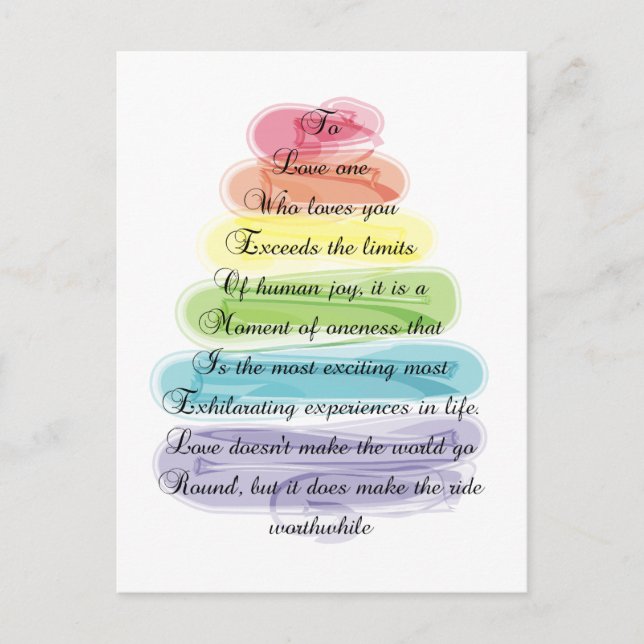 To
Love one
Who loves you
Exceeds the limits
Of human joy, it is a
Moment of oneness that
Is the most exciting most
Exhilarating experiences in life.
Love doesn't make the world go
Round, but it does make the ride
worthwhile